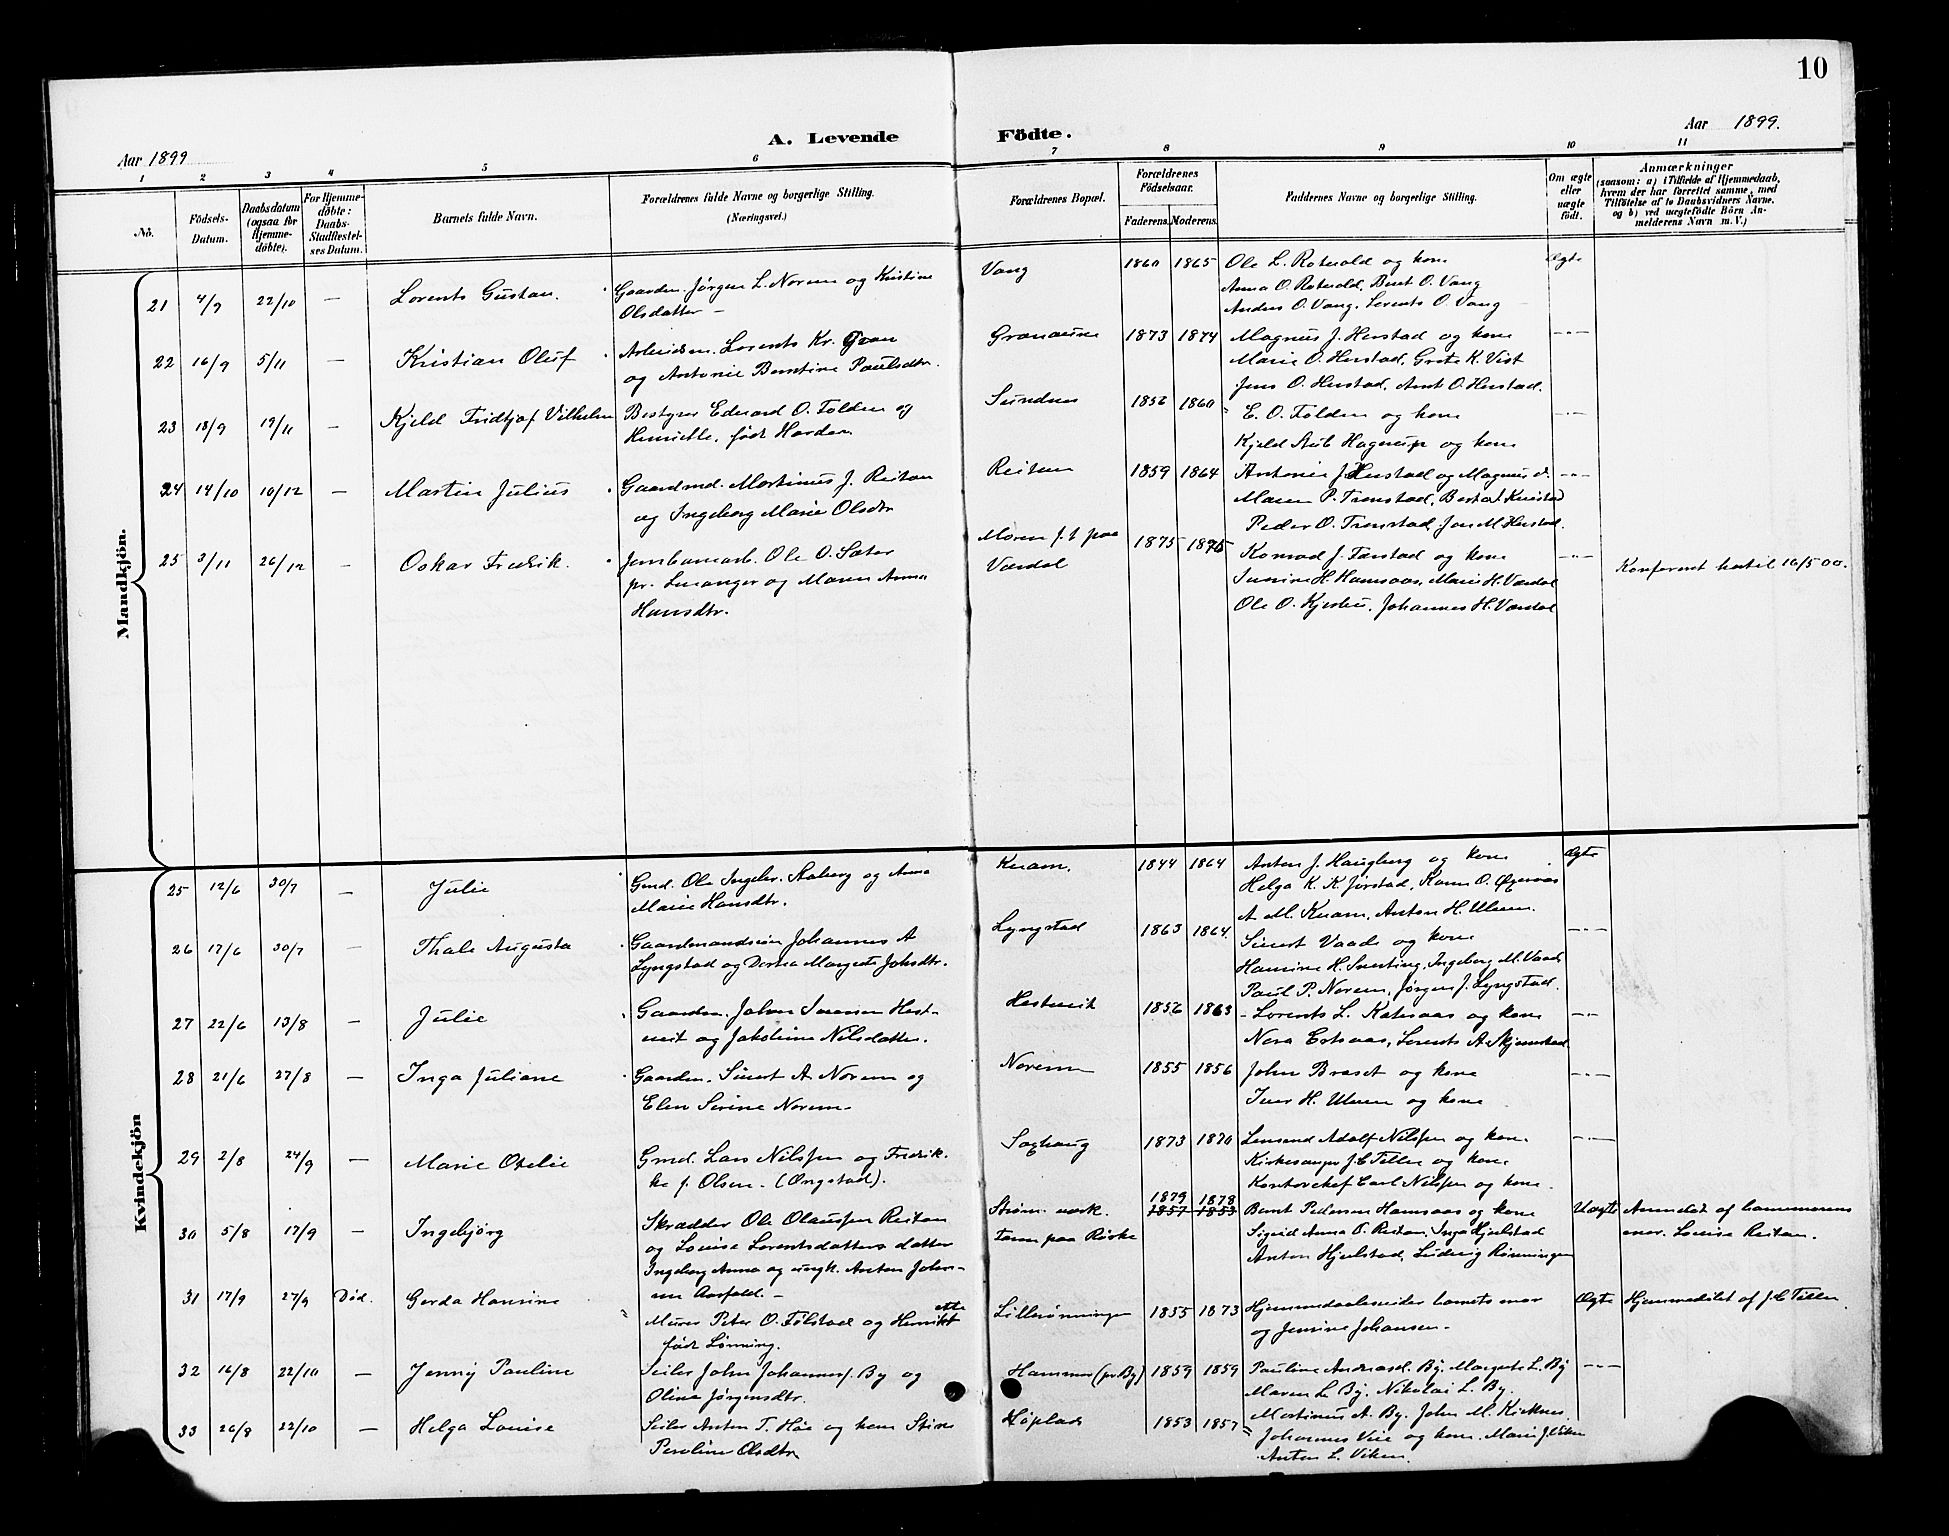 10
A. Levende Födte.
Aar 1899
Aar 1899.
1 2 3 4 5 6 7 8 9 10 11
No.
Födsels-Datum.
Daabsdatum (ogsaa for Hjemme-döbte).
For Hjemme-döbte: Daabs-Stadfæstel-ses Datum.
Barnets fulde Navn.
Forældrenes fulde Navne og borgerlige Stilling.
(Næringsvei.)
Forældrenes Bopæl.
Forældrenes Födselsaar.
Faderens. Moderens.
Faddernes Navne og borgerlige Stilling.
Om ægte eller uægte födt.
Anmærkninger
(saasom: a) i Tilfælde af Hjemmedaab,
hvem der har forrettet samme, med
Tilföielse af to Daabsvidners Navne,
og b) ved uægtefödte Börn An-
melderens Navn m. V.)
Mandkjön.
21 4/9 22/10 — Lorents Gustav. Gaardm. Jørgen L. Norem og Kristine
Olsdatter —
Vang 1860 1865 Ole L. Rotvold og kone Ægte
Anna O. Rotvold, Berit O. Vang
Anders O. Vang, Lorents O. Vang
22 16/9 5/11 — Kristian Oluf Arbeidsm. Lorents Kr. Gran
og Antonie Berntine Paulsdtr.
Granaune 1873 1874 Magnus J. Herstad og kone —"—
Marie O. Herstad, Grete K. Vist
Jens O. Herstad, Arnt O. Herstad.
23 18/9 19/11 — Kjeld Fridtjof Vilhelm Bestyrer Edvard O. Følden og
Henriette, født Harder
Sundnes 1856 1860 E. O. Følden og kone —"—
Kjeld Stub Hagerup og kone
24 14/10 10/12 — Martin Julius Gaardmd. Martinus J. Reitan
og Ingeborg Marie Olsdtr
Reitan 1859 1864 Antonie J. Herstad og Magnus do. —"—
Maren P. Tronstad,
Peder O. Tronstad, Jon M. Herstad.
25 3/11 26/12 — Oskar Fredrik. Jernbanearb. Ole O. Sæter
pr. Levanger og Maren Anna
Hansdtr.
Moren f. t. paa
Værdal
1875 1875 Konrad J. Færstad og kone —"—
H. Hamsaas, Marie H. Værdal
Ole O. Kjesbu, Johannes H. Værdal
Konfereret hertil 16/5 00.
Kvindekjön
25 12/6 30/7 — Julie Gmd. Ole Ingebr. Aaberg og Anna
Marie Hansdtr.
Kvam. 1844 1864 Anton J. Haugberg og kone Ægte
Helga K. K. Jørstad, Karen O.
A. M. Kvam, Anton H. Ulven.
26 17/6 30/7 — Thale Augusta Gaardmandssøn Johannes A
Lyngstad og Dortea Margrete Johsdtr.
Lyngstad 1863 1864. Sivert Vaade og kone —"—
Hansine H. Sverting, Ingeborg M. Vaade
Paul P. Norem, Jørgen J. Lyngstad.
27 22/6 13/8 — Julie Gaardm. Johan Iversen Hest-
veit og Jakobine Nilsdatter.
Hestveit 1856 1863 Lorents L. Kalvsaas og kone —"—
Nora Ertsaas, Lorents A. Skjemstad
28 21/6 27/8 — Inga Juliane Gaardm. Sivert A. Norem og
Elen Serine Norem —
Norem 1855 1856 John Braset og kone —"—
Iver H. Ulven og kone
29 2/8 24/9 — Marie Otelie Gmd. Lars Nilssen og Fredrik-
ke f. Olsen — (Ongstad).
Saxhaug 1873 1870 Lensmd Adolf Nilssen og kone —"—
Kirkesanger J. C. Teller og kone
Kontorchef Carl Nilssen og kone
30 5/8 17/9 Ingebjörg Skrædder Ole Olaussen Reitan
og Louise Lorentsdatters datter
Ingeborg Anna og ungk. Anton Johan-
sen Aasfald. —
tomt paa Røske
1879 1878
1857 1853
Bernt Pedersen Hamsaas og kone Uægte
Sigrid Anna O. Reitan, Inga Hjelstad
Anton Hjelstad, Ludvig Rønningen
Anmeldt af barnemorens
mor. Louise Reitan.
31 17/9 27/9 Död. Gerda Hansine Murer Peter O. Følstad og Henriette
født Lønning.
Lillerønningen 1855 1873 Hjemmedaabsvidner barnets mor Ægte
og Jensine Johansen —
Hjemmedöbt af J. C. Teller
32 16/8 22/10 — Jenny Pauline Seiler John Johannesf. By og
Olina Jørgensdtr.
Hammer (pr By) 1859 1859 Pauline Andreasd. By, Margrete L. By —"—
Maren L. By, Nikolai L. By.
Martinus A. By, John M. Kirknes
33 26/8 22/10 — Helga Louise Seiler Anton T. Høe og kone Stine
Pauline Olsdtr
Høplads 1853 1857 Johannes Veie og kone,
Anton L. Viken.